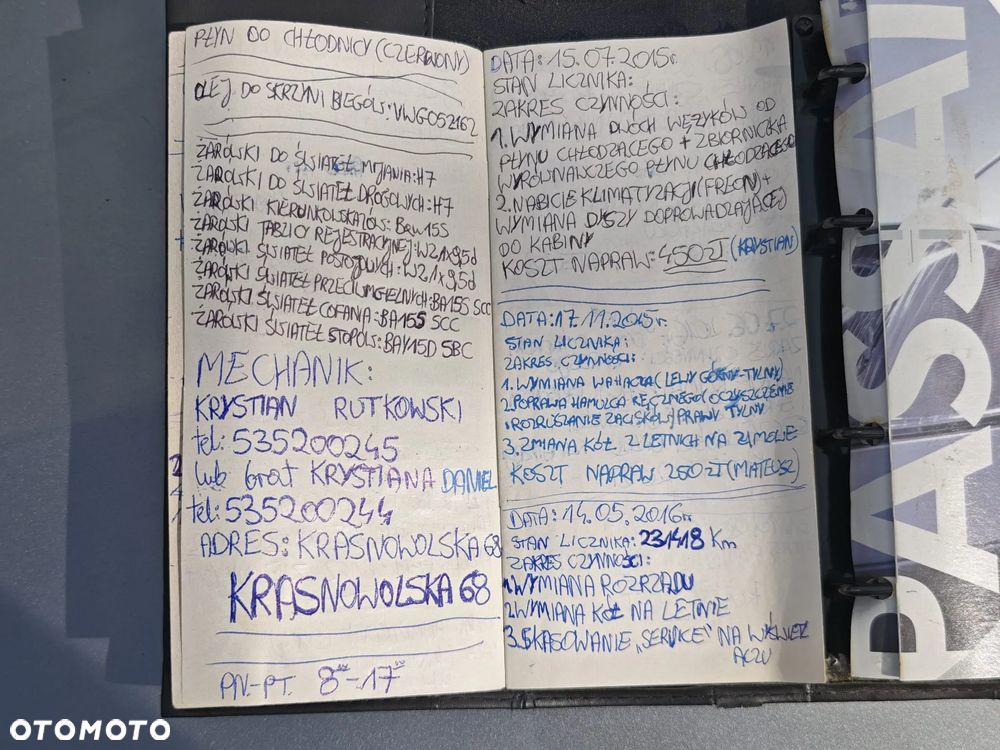 PŁYN DO CHŁODNICY (CZERWONY)
OLEJ DO SKRZYNI BIEGÓW: VWG052162
ŻARÓWKI DO ŚWIATEŁ MIJANIA: H7
ŻARÓWKI DO ŚWIATEŁ DROGOWYCH: H7
ŻARÓWKI KIERUNKOWSKAZÓW: Baw15S
ŻARÓWKI TABLICY REJESTRACYJNEJ: W2,1x9,5d
ŻARÓWKI ŚWIATEŁ POSTOJOWYCH: W2,1x9,5d
ŻARÓWKI ŚWIATEŁ PRZECIWMGIELNYCH: BA15S SCC
ŻARÓWKI ŚWIATEŁ COFANIA: BA15S SCC
ŻARÓWKI ŚWIATEŁ STOPÓW: BAY15D SBC
MECHANIK:
KRYSTIAN RUTKOWSKI
tel: 535200245
lub brat KRYSTIANA DANIEL
tel: 535200244
ADRES: KRASNOWOLSKA 68
KRASNOWOLSKA 68
PN-PT. 8⁰⁰-17⁰⁰
DATA: 15.07.2015r.
STAN LICZNIKA:
ZAKRES CZYNNOŚCI:
1. WYMIANA DWÓCH WĘŻYKÓW OD
PŁYNU CHŁODZĄCEGO + ZBIORNICZKA
WYRÓWNAWCZEGO PŁYNU CHŁODZĄCEGO
2. NABICIE KLIMATYZACJI (FREON) +
WYMIANA DYSZY DOPROWADZAJĄCEJ
DO KABINY
KOSZT NAPRAW: 450 zł (KRYSTIAN)
DATA: 17.11.2015r.
STAN LICZNIKA:
ZAKRES CZYNNOŚCI:
1. WYMIANA WAHACZA (LEWY GÓRNY-TYLNY)
2. POPRAWA HAMULCA RĘCZNEGO (OCZYSZCZENIE
I ROZRUSZANIE ZACISKÓW) PRAWY TYLNY
3. ZMIANA KÓŁ Z LETNICH NA ZIMOWE
KOSZT NAPRAW 250 ZŁ (MATEUSZ)
DATA: 14.05.2016r.
STAN LICZNIKA: 231418 Km
ZAKRES CZYNNOŚCI:
1. WYMIANA ROZRZĄDU
2. WYMIANA KÓŁ NA LETNIE
3. SKASOWANIE „SERVICE" NA WYŚWIETL
ACZU
PASSAT
OTOMOTO